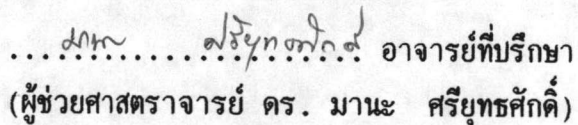 มานะ ศรียุทธศักดิ์ อาจารย์ที่ปรึกษา
(ผู้ช่วยศาสตราจารย์ ดร. มานะ ศรียุทธศักดิ์)